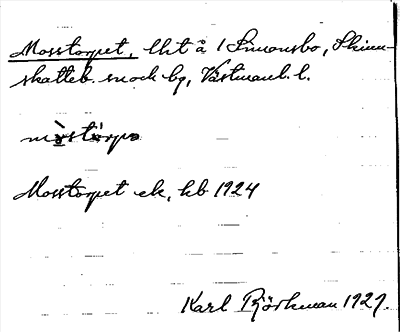 Mosstorpet, lht å 1 Simonsbo, Skinn-
skatteb. snock bg, Västmanl. l.
Mosstorpet ek, hb 1924
Karl Björkman 1927.